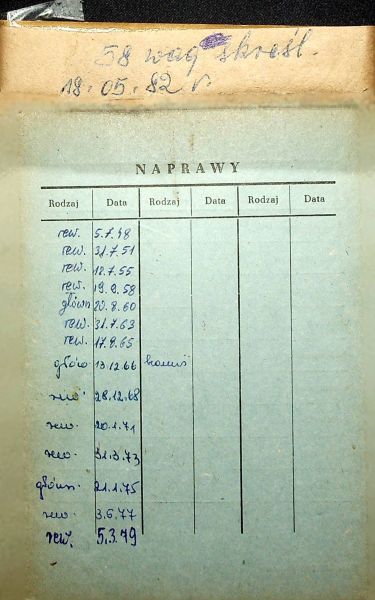 58 wag skreśl.
18.05.82 r.
NAPRAWY
Rodzaj Data Rodzaj Data Rodzaj Data
rew. 5.7.48
rew. 31.7.51
rew. 18.7.55
rew. 19.9.58
główn 20.8.60
rew. 31.7.63
rew. 17.9.65
główn 13.12.66
rew. 28.12.68
rew. 20.1.71
rew. 31.3.73
główn. 21.1.75
rew. 3.6.77
rew. 5.3.79